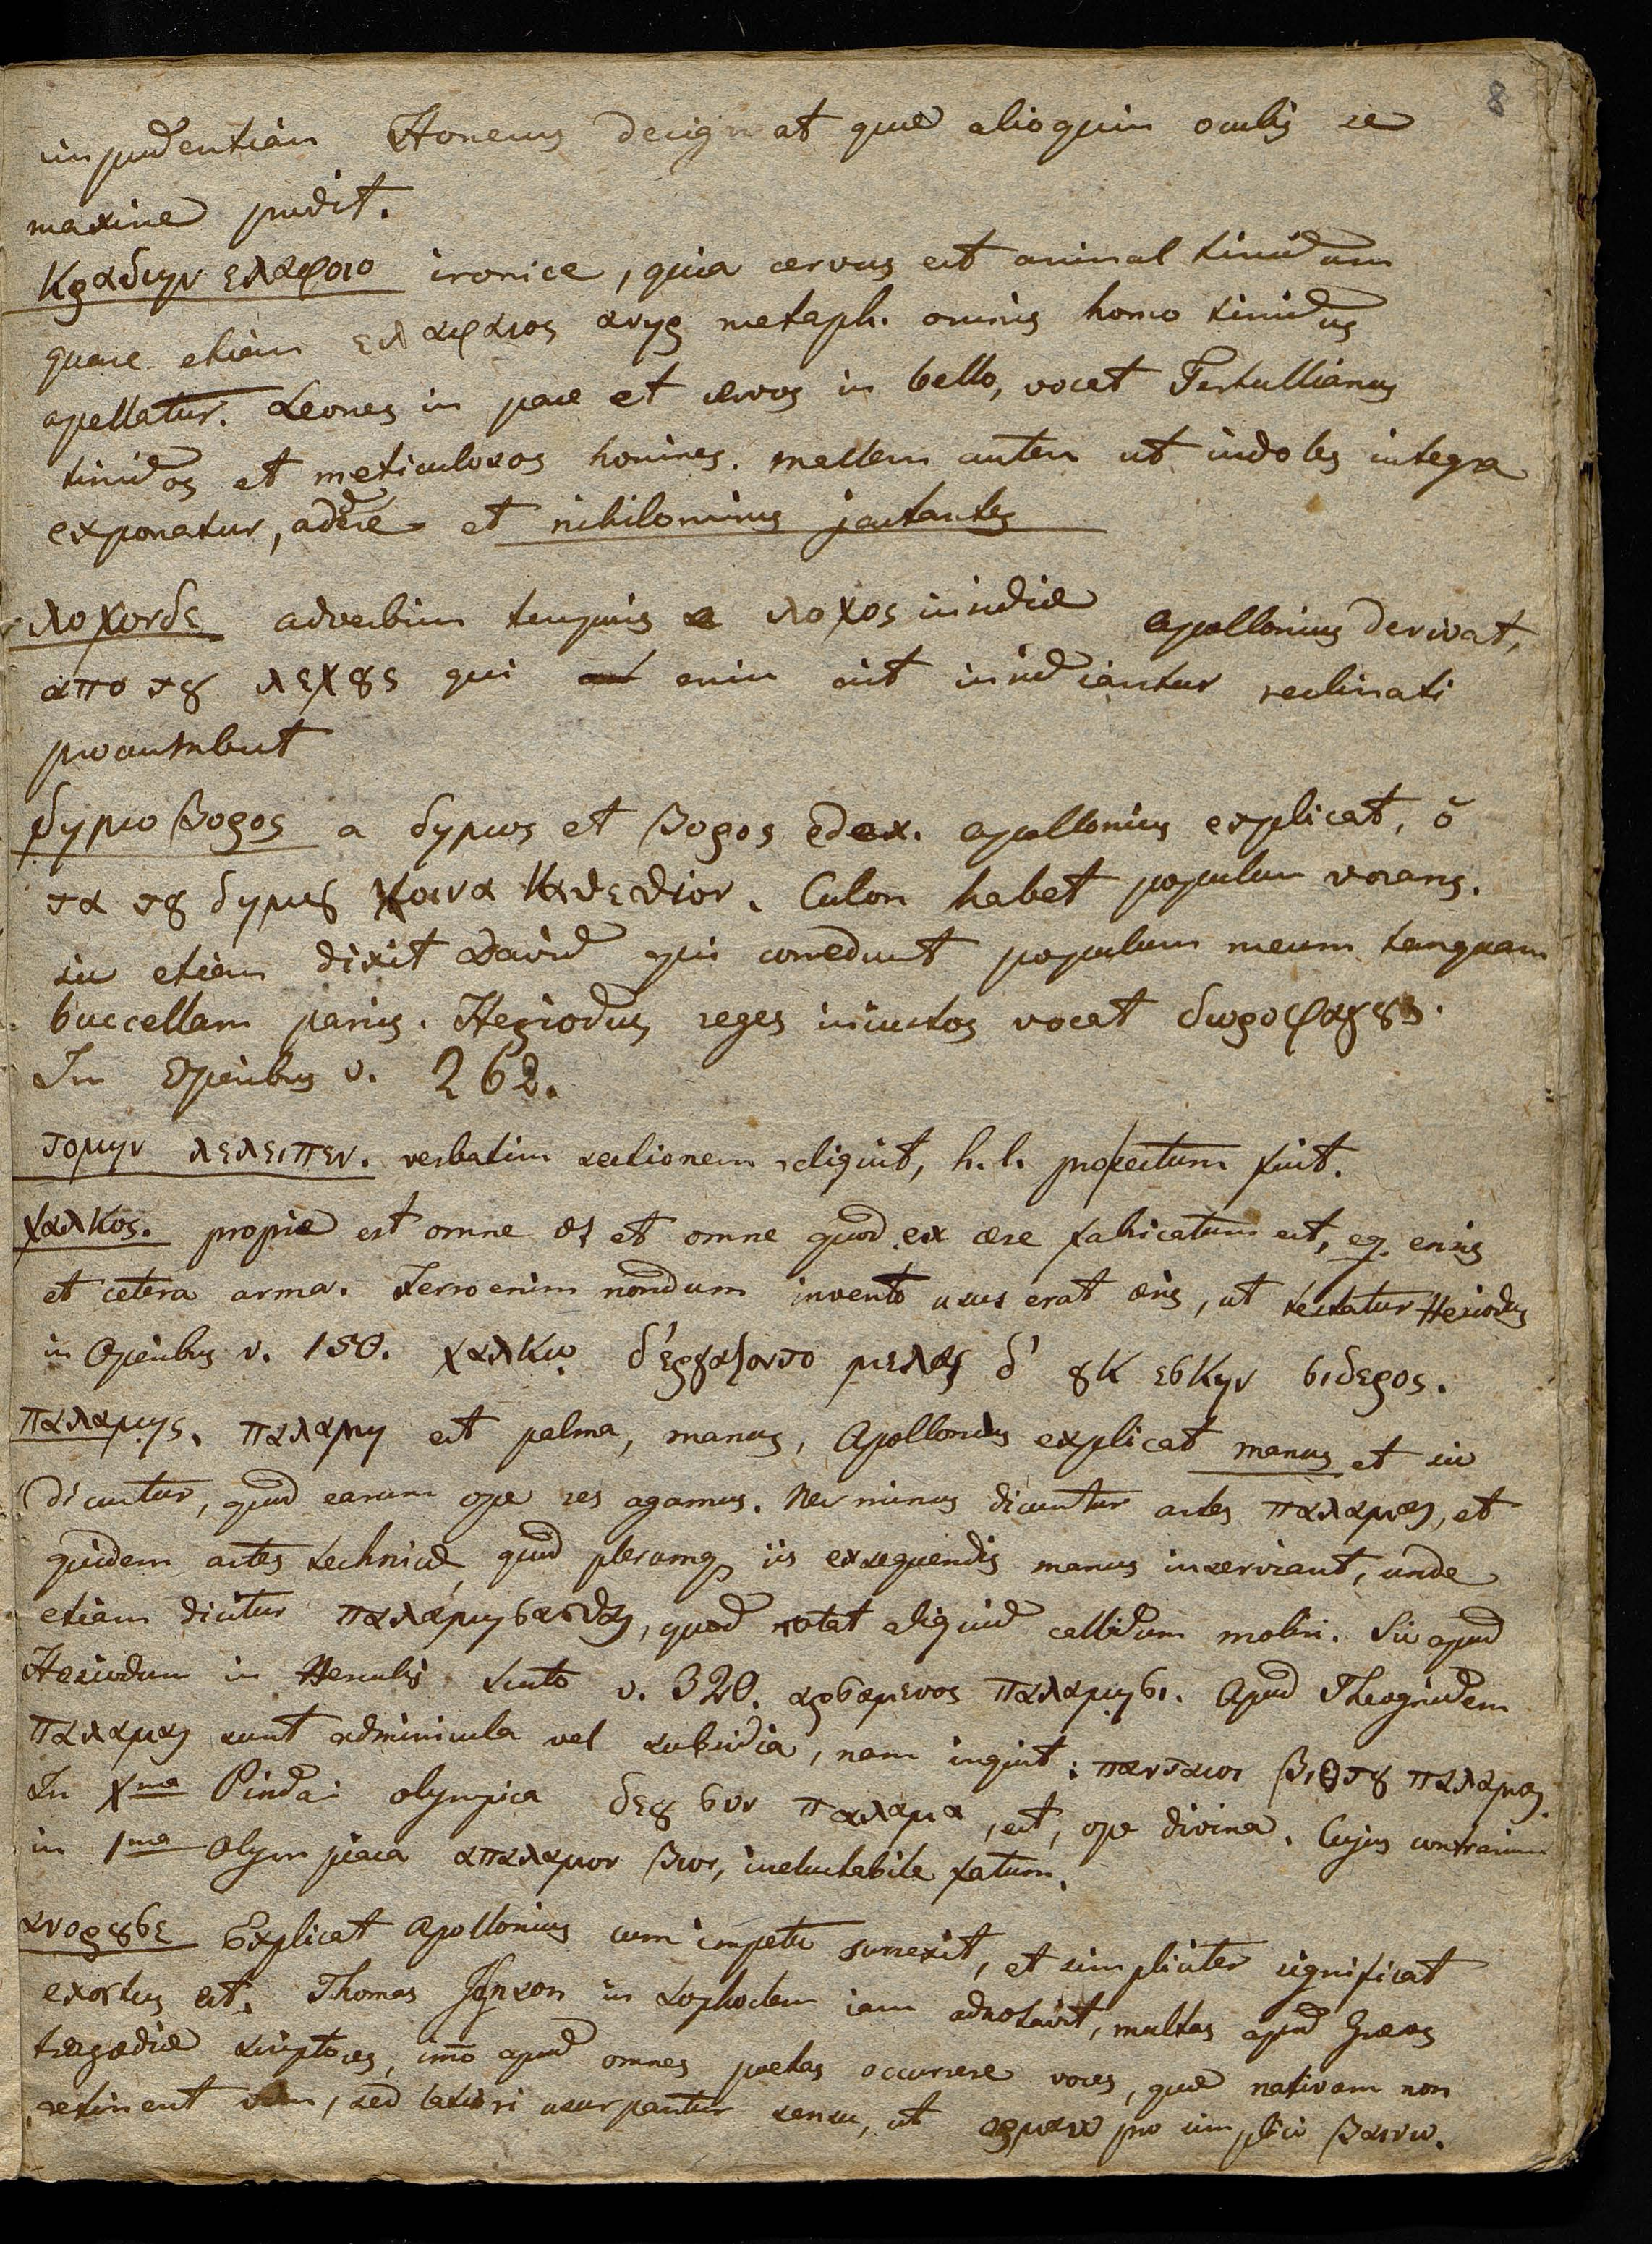 8
impudentiam Homerus designat quae alioquin oculis se
maxime prodit.
Κραδιην ελαφοιο ironice, quia cervus est animal timidum
quare etiam ελαφαιος ανηρ metaph. omnis homo timidus
apellatur. Leones in pace et cervos in bello, vocat Tertullianus
timidos et meticulosos homines. mallem autem ut indoles integra
exponatur, adderẽ et nihilominus jactantes
λοχονδε adverbium temporis a λοχος insidiae Apollonius derivat,
απο τȣ λεχȣς qui enim sit insidiantur reclinati
procumbunt
δημοβορος a δημος et βορος edax. Apollonius explicat, ὁ
τα τȣ δημȣ κοινα κατεσθιον. Culon habet populum vorans.
sic etiam dixit David qui comedunt populum meum tanquam
buccellam panis. Hesiodus reges iniustos vocat δωροφαγȣς.
In Operibus v. 262.
τομην λελειπεν. verbatim sectionem reliquit, h. l. profectum fuit.
χαλκος. proprie est omne æs et omne quod ex ære fabricatum est, eg. ensis
et cetera arma. Ferro enim nondum invento usus erat æris, ut testatur Hesiodus
in Operibus v. 150. χαλκῳ δ' εργαζοντο μελας δ' ȣκ εσκην σιδερος.
παλαμης. παλαμη est palma, manus, Apollonius explicat manus et sic
dicuntur, quod earum ope res agamus. Nec minus dicuntur artes παλαμαι, et
quidem artes technicæ, quod plerumq iis exsequendis manus inserviant, unde
etiam dicitur παλαμησασθαι, quod notat aliquid callidum moliri. Sic apud
Hesiodum in Herculis scuto v. 320. αρσαμενος παλαμησι. Apud Theognidem
παλαμαι sunt adminicula vel subsidia, nam inquit: παντοιοι βιοτȣ παλαμαι.
In Xma Pindari olympica θεȣ συν παλαμα, est, ope divina. Cujus contrarium
in 1ma Olympiaca απαλαμον βιον, ineluctabile fatum.
ανορȣσε Explicat Apollonius cum impetu surrexit, et simpliciter significat
exortus est. Thomas Jonson in Sophoclem iam adnotavit, multas apud Græcos
tragediæ scriptores, imo apud omnes poetas occurrere voces, quæ nativam non
retinent vim, sed latiori usurpantur sensu, ut pro simplici βαινω.